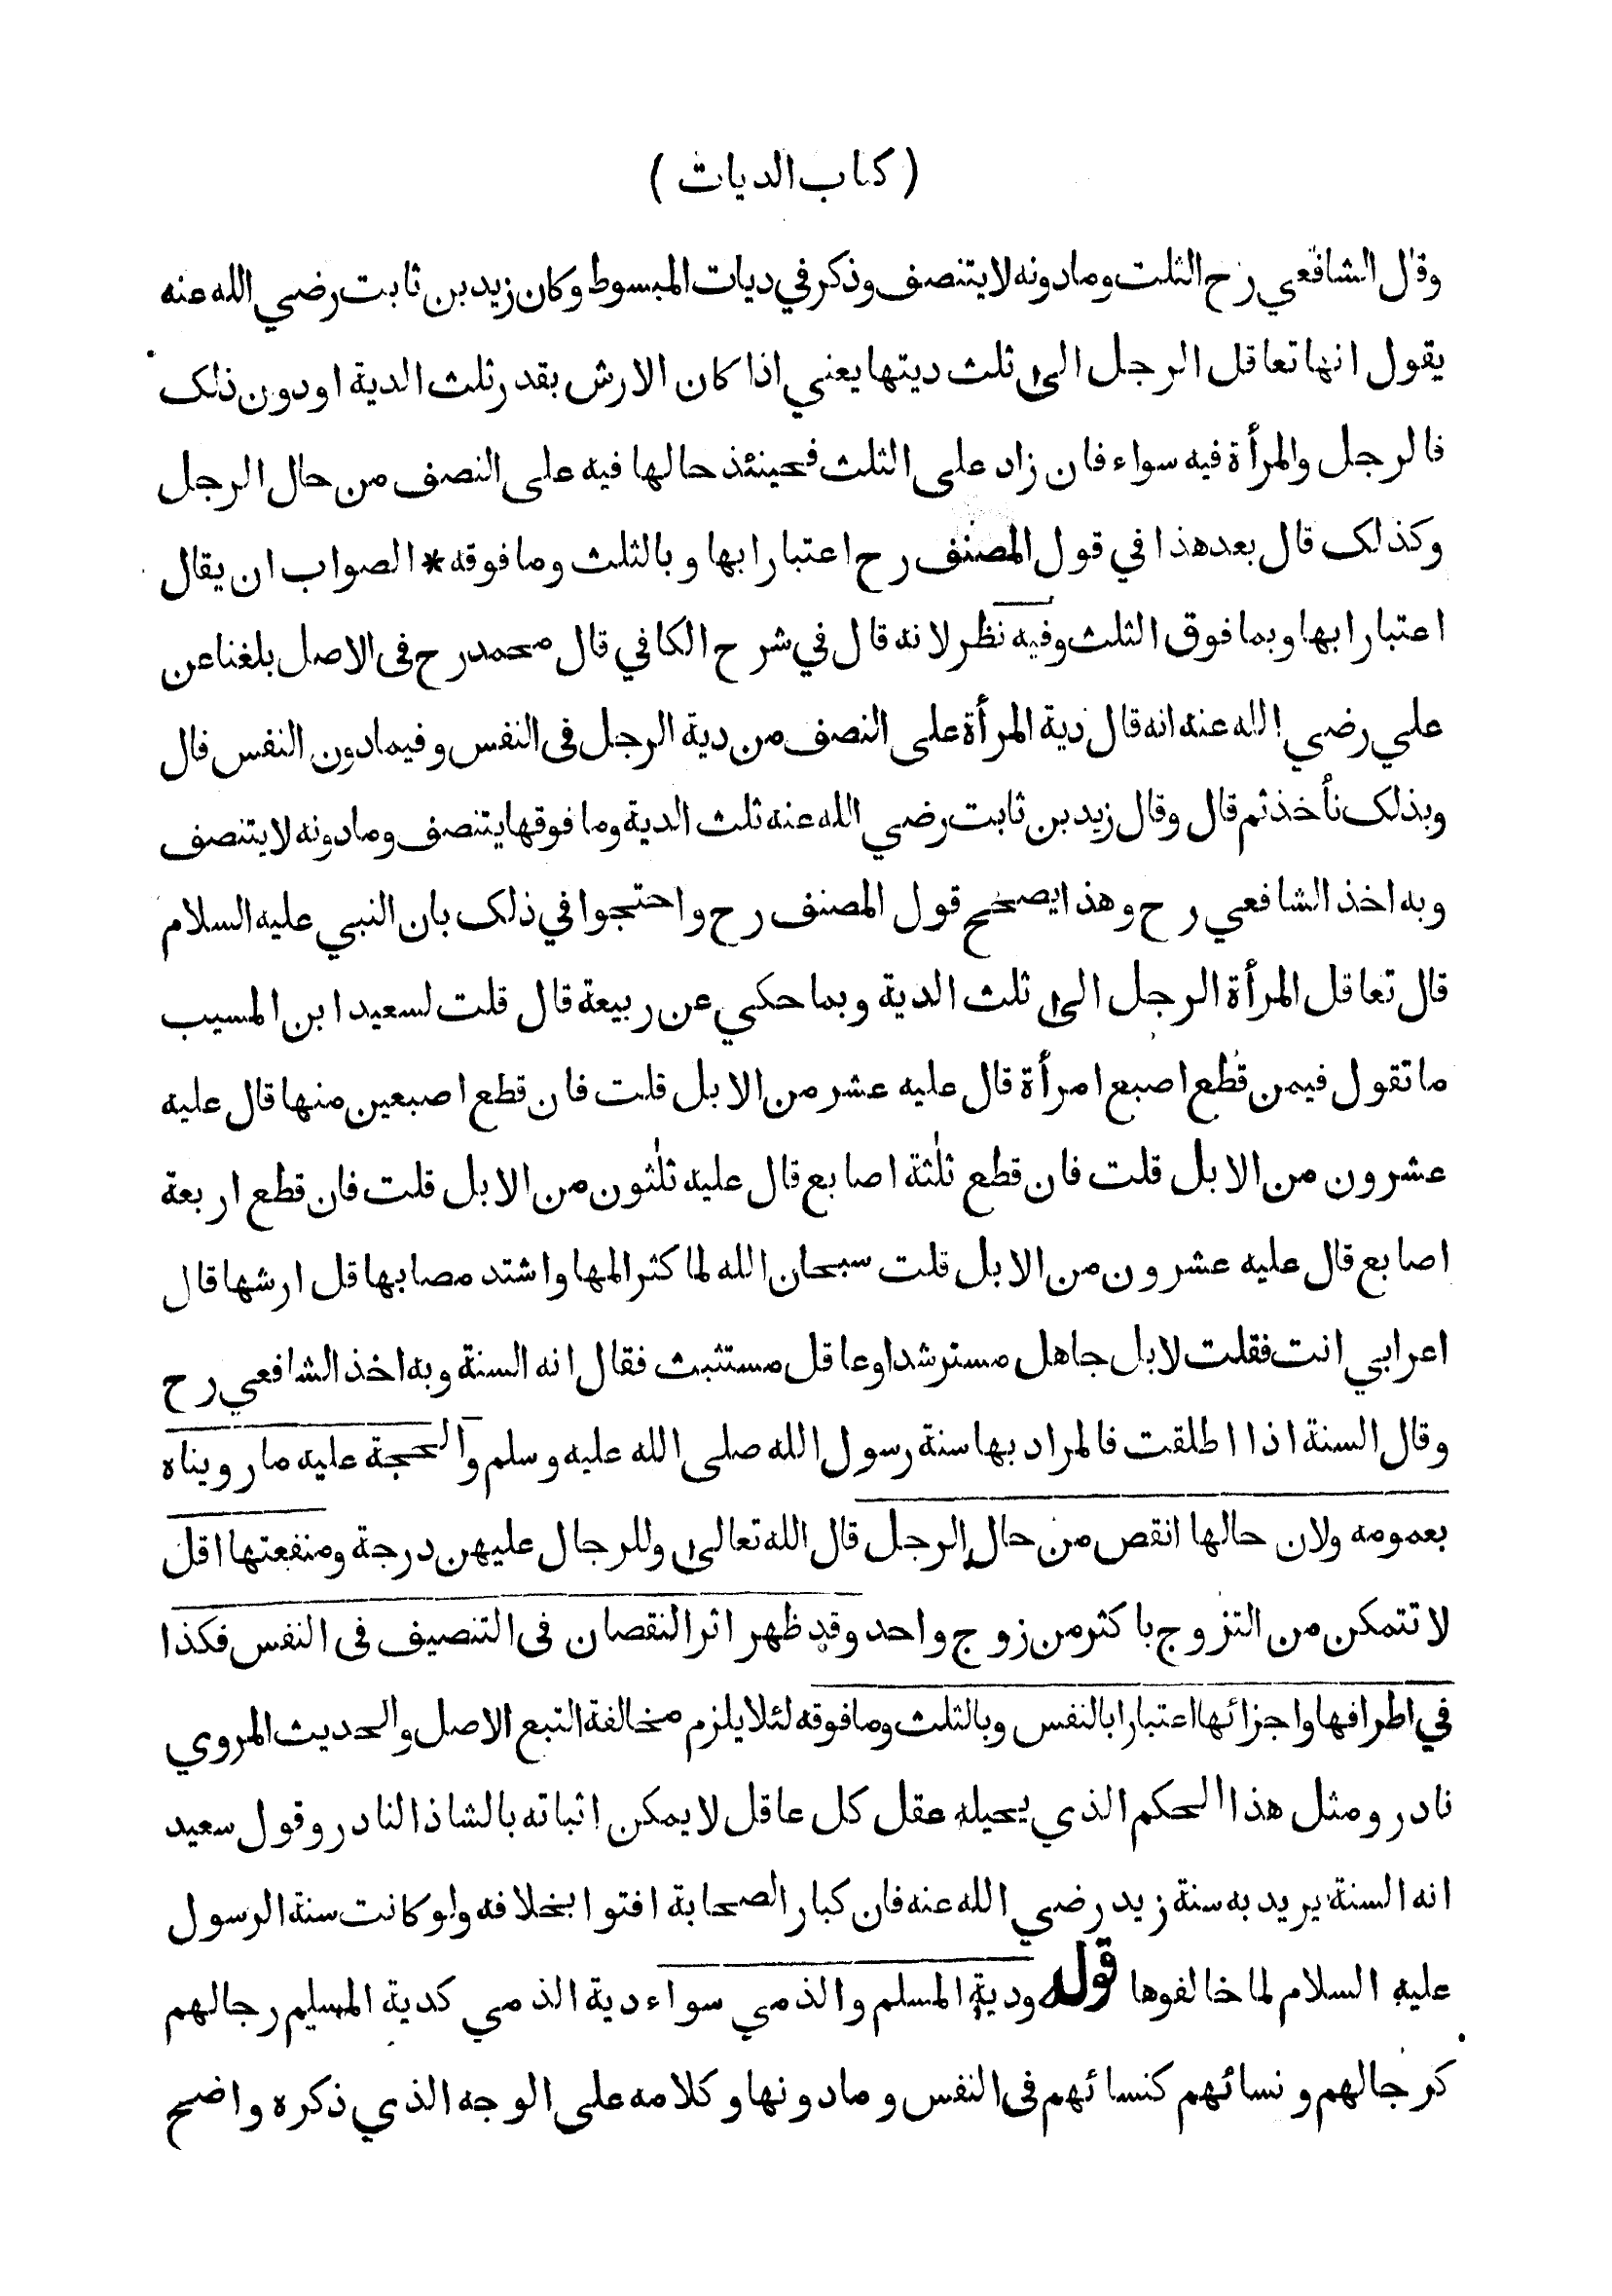 ( كتاب الديات )
وقال الشافعي رح الثلث ومادونه لا يتنصف وذكر في ديات المبسوط وكان زيد بن ثابت رضي الله عنه
يقول انها تعاقل الرجل الى ثلث ديتها يعني اذا كان الارش بقدر ثلث الدية او دون ذلك
فالرجل والمرأة فيه سواء فان زاد على الثلث فحينئذ حالها فيه على النصف من حال الرجل
وكذلك قال بعد هذا في قول المصنف رح اعتبارا بها وبالثلث وما فوقه * الصواب ان يقال
اعتبارا بها وبما فوق الثلث وفيه نظر لانه قال في شرح الكافي قال محمد رح في الاصل بلغنا عن
علي رضي الله عنه انه قال دية المرأة على النصف من دية الرجل في النفس وفيما دون النفس قال
وبذلك نأخذ ثم قال وقال زيد بن ثابت رضي الله عنه ثلث الدية وما فوقها يتنصف وما دونه لا يتنصف
وبه اخذ الشافعي رح وهذا يصحح قول المصنف رح واحتجوا في ذلك بان النبي عليه السلام
قال تعاقل المرأة الرجل الى ثلث الدية وبما حكي عن ربيعة قال قلت لسعيد ابن المسيب
ما تقول فيمن قطع اصبع امرأة قال عليه عشر من الابل قلت فان قطع اصبعين منها قال عليه
عشرون من الابل قلت فان قطع ثلثة اصابع قال عليه ثلثون من الابل قلت فان قطع اربعة
اصابع قال عليه عشرون من الابل قلت سبحان الله لما كثر المها واشتد مصابها قل ارشها قال
اعرابي انت فقلت لا بل جاهل مسترشد او عاقل مستثبت فقال انه السنة وبه اخذ الشافعي رح
وقال السنة اذا اطلقت فالمراد بها سنة رسول الله صلى الله عليه وسلم والحجة عليه ما رويناه
بعمومه ولان حالها انقص من حال الرجل قال الله تعالى وللرجال عليهن درجة ومنفعتها اقل
لا تتمكن من التزوج باكثر من زوج واحد وقد ظهر اثر النقصان في التنصيف في النفس فكذا
في اطرافها واجزائها اعتبارا بالنفس وبالثلث وما فوقه لئلا يلزم مخالفة التبع الاصل والحديث المروي
نادر ومثل هذا الحكم الذي يحيله عقل كل عاقل لا يمكن اثباته بالشاذ النادر وقول سعيد
انه السنة يريد به سنة زيد رضي الله عنه فان كبار الصحابة افتوا بخلافه ولو كانت سنة الرسول
عليه السلام لما خالفوها قوله ودية المسلم والذمي سواء دية الذمي كدية المسلم رجالهم
كرجالهم ونسائهم كنسائهم في النفس وما دونها وكلامه على الوجه الذي ذكره واضح